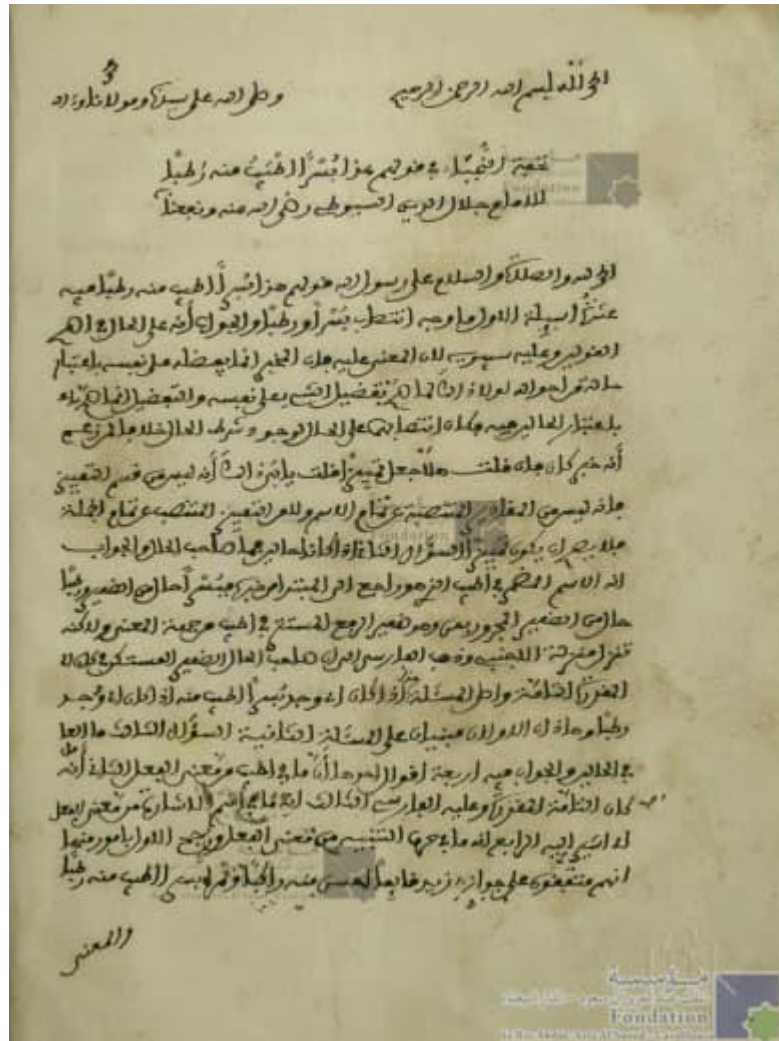 3
الحمد لله بسم الله الرحمن الرحيم وصلى الله على سيدنا ومولانا وءاله
تحفة النجباء في قولهم هذا بُسْرًا أطيب منه رُطَبًا
للإمام جلال الدين السيوطي رضي الله عنه ونفعنا
الحمد لله والصلاة والسلام على رسول الله قولهم هذا بسرا أطيب منه رطبا فيه
عشرة أسئلة الأول ما وجه انتصاب بُسْرًا ورطبا والجواب أنه على الحال في أصح
القولين وعليه سيبويه لأن المعنى عليه فإن المخبر إنما يفضله على نفسه باعتبار
حالة من أحواله لولا ذلك لما صح تفضيل الشيء على نفسه والتفضيل إنما صح
باعتبار الحالين فيه فكان انتصابهما على الحال لوجود شرط الحال خلافا لمن زعم
أنه خبر كان فإن قلت هلا جعل تمييزا قلت يأبى ذلك أنه ليس من قسم التمييز
فإنه ليس من المقادير المنتصبة عن تمام الاسم ولا من التمييز المنتصب عن تمام الجملة
فلا يصح أن يكون تمييزا السؤال الثاني إذا كانا حالين فما صاحب الحال والجواب
أنه الاسم المضمر في أطيب الذي هو راجع إلى المبتدإ من خبره فبسرا حال من الضمير ورطبا
حال من الضمير المجرور بمن وهو ضمير الرفع المستتر في أطيب من جهة المعنى ولاكنه
تنزل منزلة الأجنبي وذهب الفارسي إلى أن صاحب الحال الضمير المستكن في كان
المقدرة التامة وأصل المسئلة هذا إذا كان أي وجد بسرا أطيب منه إذا كان أي وجد
رطبا وهاذان القولان مبنيان على المسئلة الثانية السؤال الثالث ما العامل
في الحالين والجواب فيه أربعة أقوال أحدها أنه ما في أطيب من معنى الفعل الثاني أنه
كان التامة المقدرة وعليه الفارسي الثالث أنه ما في اسم الإشارة من معنى الفعل
أي أشير إليه الرابع أنه ما في حرف التنبيه من معنى الفعل ورجح الأول بأمور منها
أنهم متفقون على جواز زيد قائما أحسن منه راكبا وثمر نخلتي بسرا أطيب منه رطبا
والمعنى
Fondation